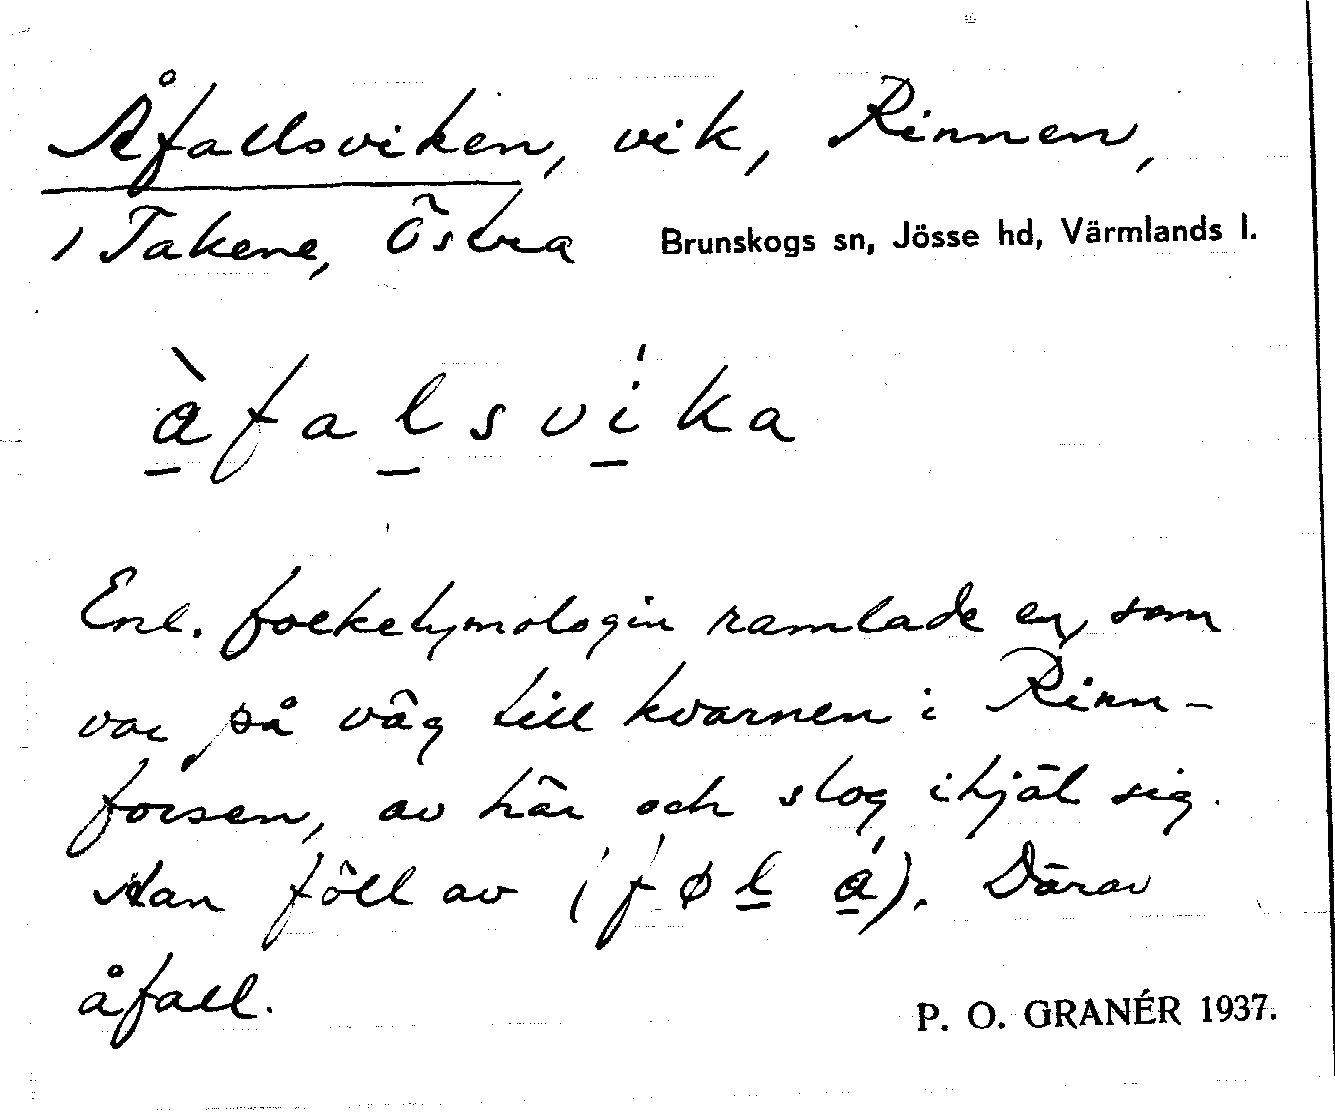 Åfallsviken, vik, Rinnen,
/ Takene, Östra Brunskogs sn, Jösse hd, Värmlands l.
a̠̋fal̠sví̠ka
Enl. folketymologin ramlade en, som
var på väg till kvarnen i Rinn-
forsen, av här och slog ihjäl sig.
Han föll av (føl̠ á̠). Därav
åfall.
P. O. GRANÉR 1937.